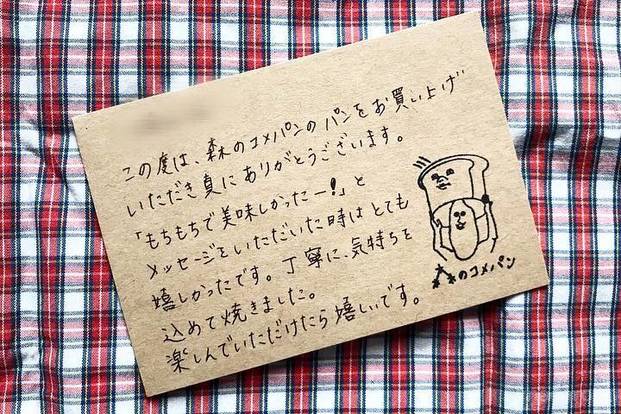 この度は、森のコメパンのパンをお買い上げ
いただき真にありがとうございます。
「もちもちで美味しかったー!」と
メッセージをいただいた時はとても
嬉しかったです。丁寧に、気持ちを
込めて焼きました。
楽しんでいただけたら嬉しいです。
森のコメパン